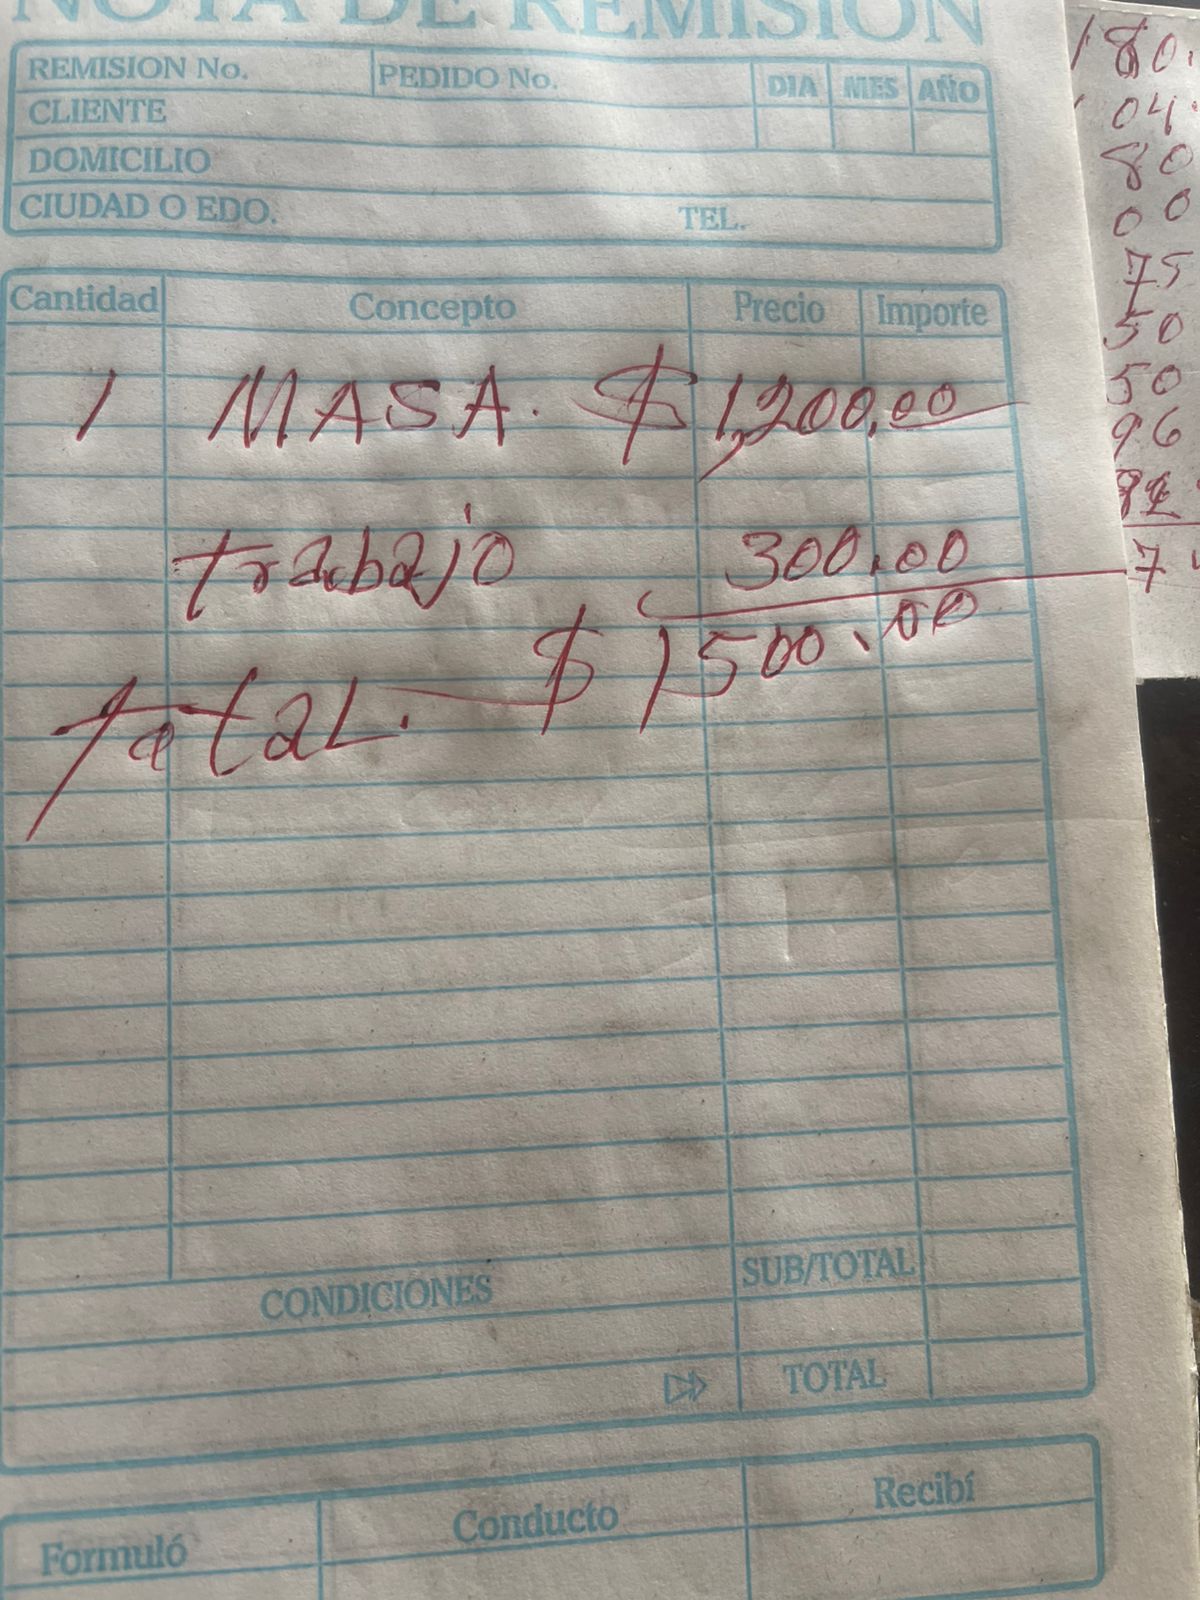 NOTA DE REMISION
REMISION No. PEDIDO No. DIA MES AÑO
CLIENTE
DOMICILIO
CIUDAD O EDO. TEL.
Cantidad Concepto Precio Importe
1 MASA. $ 1,200.00
trabajo 300.00
total. $ 1500.00
CONDICIONES
SUB/TOTAL
TOTAL
Formuló Conducto Recibí
180.
04
80
00
75
50
50
96
7